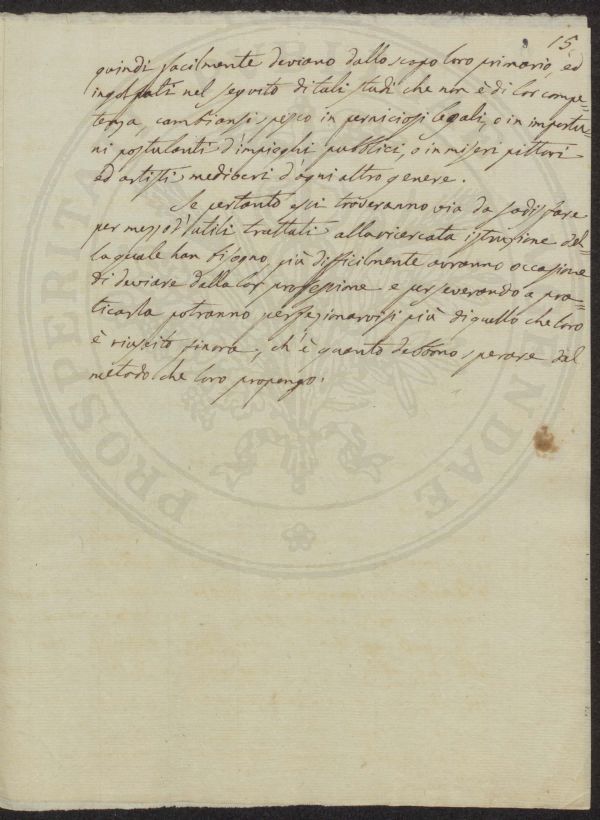 15.
quindi facilmente deviano dallo scopo loro primario, ed
ingolfati nel seguito di tali studi che non è di lor compe=
tenza, cambiansi spesso in perniciosi legali, o in importu=
ni postulanti d'impieghi pubblici, o in miseri pittori
ed artisti mediocri d'ogni altro genere.
Se pertanto essi troveranno via da sodisfare
per mezzo d'utili trattati alla ricercata istruzione del=
la quale han bisogno, più difficilmente avranno occasione
di deviare dalla lor professione e perseverando a pra=
ticarla potranno perfezionarvisi più di quello che loro
è riuscito finora; ch'è quanto debbono sperare dal
metodo che loro propongo.
PROSPERITA
ENDAE